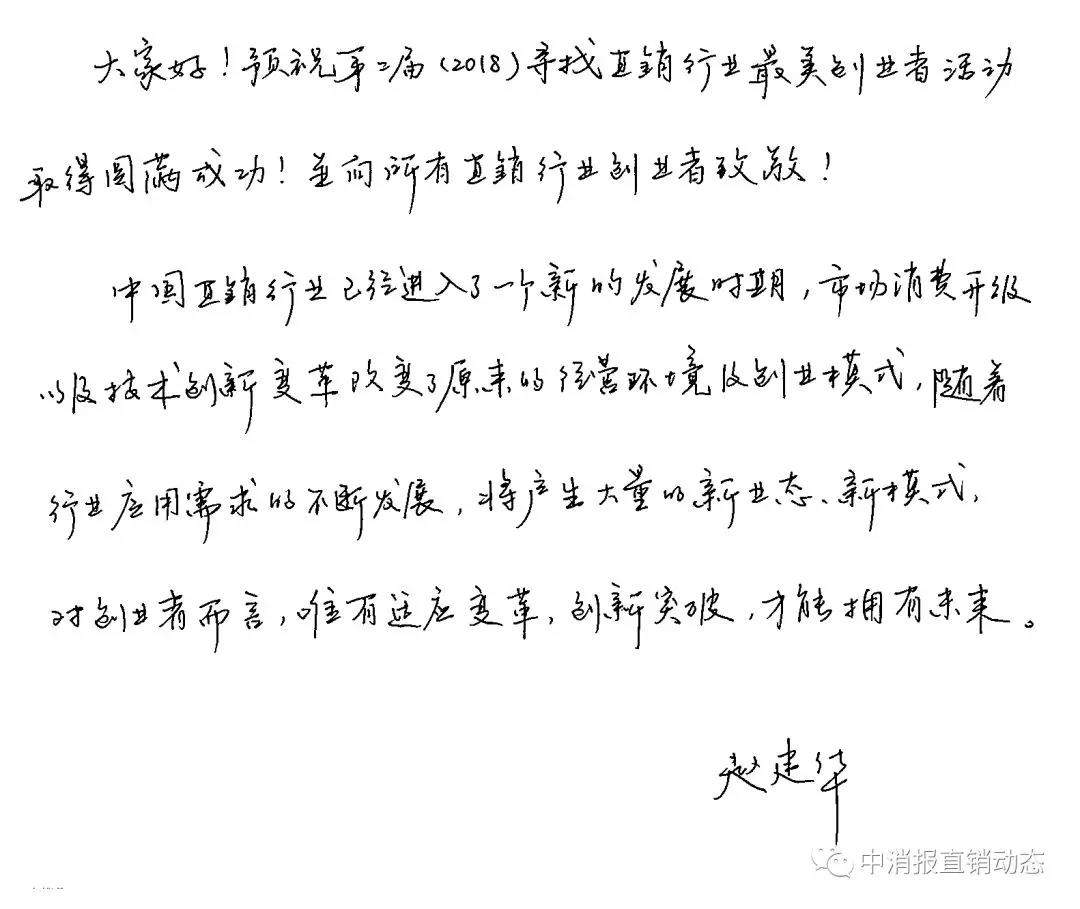 大家好！预祝第二届（2018）寻找直销行业最美创业者活动
取得圆满成功！并向所有直销行业创业者致敬！
中国直销行业已经进入了一个新的发展时期，市场消费升级
以及技术创新变革改变了原来的经营环境及创业模式，随着
行业应用需求的不断发展，将产生大量的新业态、新模式，
对创业者而言，唯有适应变革，创新突破，才能拥有未来。
赵建华
中消报直销动态